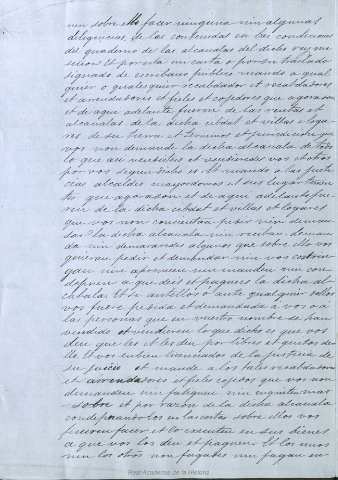 nin sobre ello facer ninguna nin algunas
diligencias de las contenidas en las condiciones
del quaderno de las alcavalas del dicho rey mi
señor et por esta mi carta o por su traslado
signado de escribano publico mando a qual
quier o qualesquier recabdador et recabdadores
et arrendadores et fieles et cojedores que agora son
et de aqui adelante fueren de las rentas et
alcavalas de la dicha cibdad et villas e loga-
res de su tierra et terminos et juridicion que
vos non demande la dicha alcavala de todo
lo que asi et vendieredes vos et otros
por vos segund dicho es Et mando a las justi-
cias alcaldes mayordomos et sus lugar tenien-
tes que agora son et de aqui adelante fue-
ren de la dicha cibdat et villas et logares
que vos non consientan pedir nin deman-
dar la dicha alcavala nin reciban deman-
da nin demandas algunas que sobre ello vos
quieran pedir et demandar nin vos costrin-
gan nin apremien nin manden nin con-
depnen a que deis et paguees la dicha al-
cabala Et si ante ellos o ante qualquier dellos
vos fuere pedida et demandada a vos o a
las personas que en vuestro nombre se han
vendido et vendieren lo que dicho es que vos
den que les et les den por libres et quitos de
llo Et vos enbien licenciados de la justicia de
su juicio et mando a los tales recabdadores
et arrendadores et fieles cojedores que vos non
demanden nin fatiguen nin inquieten mas
sobre et por razon de la dicha alcavala
condepnandolos en las costas sobre ellos vos
fisieren facer et lo executen en sus bienes
a que vos los den et paguen Et los unos
nin los otros non fagades nin fagan en
Real Academia de la Historia